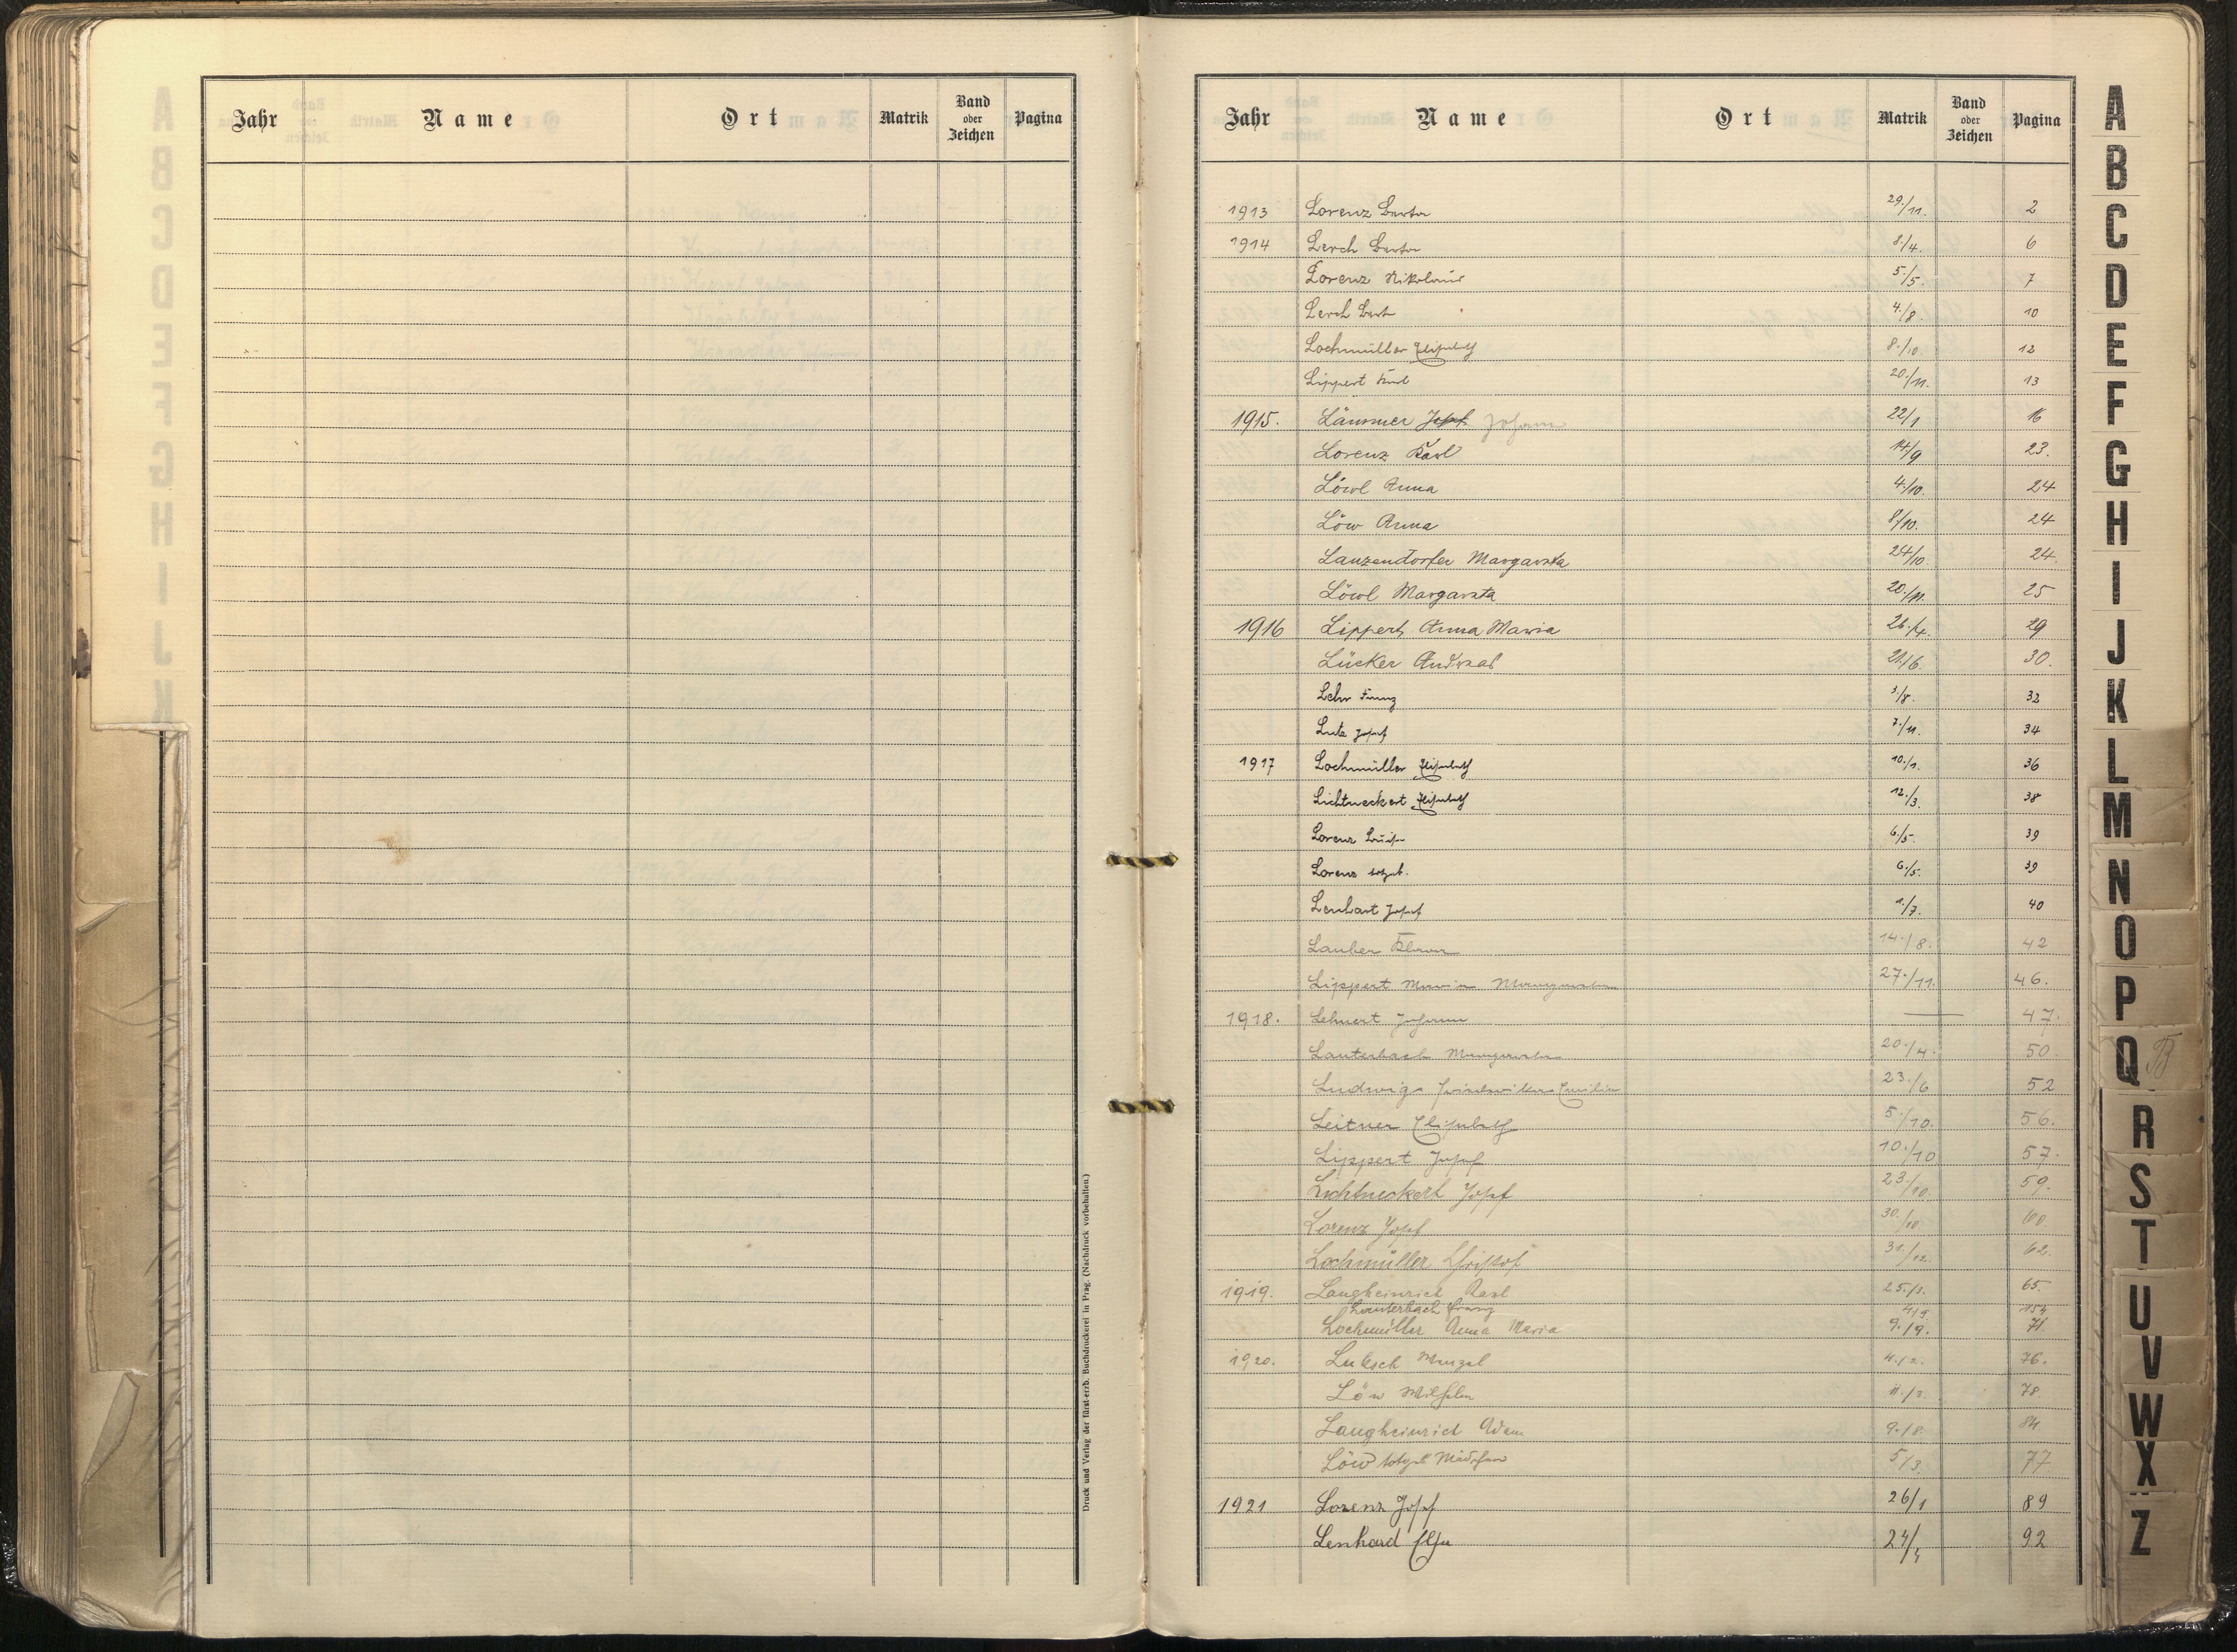 Jahr Name Ort Matrik Band oder Zeichen Pagina
Druck und Verlag der fürst-erzb. Buchdruckerei in Prag. (Nachdruck vorbehalten.)
Jahr Name Ort Matrik Band oder Zeichen Pagina
1913 Lorenz Berta 29./11. 2
1914 Lerch Berta 8./4. 6
Lorenz Nikolaus 5./5. 7
Lerch 4./8. 10
Lochmüller Elisabeth 8./10. 12
Lippert Karl 20./11. 13
1915. Lämmer Josef Johann 22/1 16
Lorenz Karl 14/9 23.
Löwl Anna 4./10. 24
Löw Anna 8/10. 24
Lanzendörfer Margareta 24/10 24.
Löwl Margareta 20./11. 25
1916 Lippert Anna Maria 26./4. 29
Lücker Andreas 21./6. 30.
Lehr Franz 3./8. 32
Josef 7./11. 34
1917 Lochmüller Elisabeth 10./1. 36
Lichtneckert Elisabeth 12./3. 38
Lorenz Luise 6./5. 39
Lorenz totgeb. 6./5. 39
Lenhart Josef 1./7. 40
Lauber Klara 14./8. 42
Lippert Maria Margareta 27./11. 46.
1918. Lehnert Johann — 47.
Lauterbach Margareta 20./4. 50.
Ludwig Friederika Emilie 23./6 52
Leitner Elisabeth 5./10. 56.
Lippert Josef 10./10 57.
Lichtneckert Josef 23/10. 59.
Lorenz Josef 30./10. 60
Lochmüller Christof 31./12. 62.
1919. Langheinrich Karl 25./1. 65.
Lauterbach Franz 4/9. 154
Lochmüller Anna Maria 9./9. 71.
1920. Luksch Wenzel 4./2. 76.
Löw Wilhelm 11./3. 78.
Langheinrich Adam 9./8. 84
Löw totgeb. Mädchen 5/3. 77
1921 Lorenz Josef 26/1 89
Lenhard Else 24/4 92
A
B
C
D
E
F
G
H
I
J
K
L
M
N
O
P
Q
R
S
T
U
V
W
X
Z